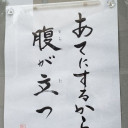 あてにするから
腹が立つ